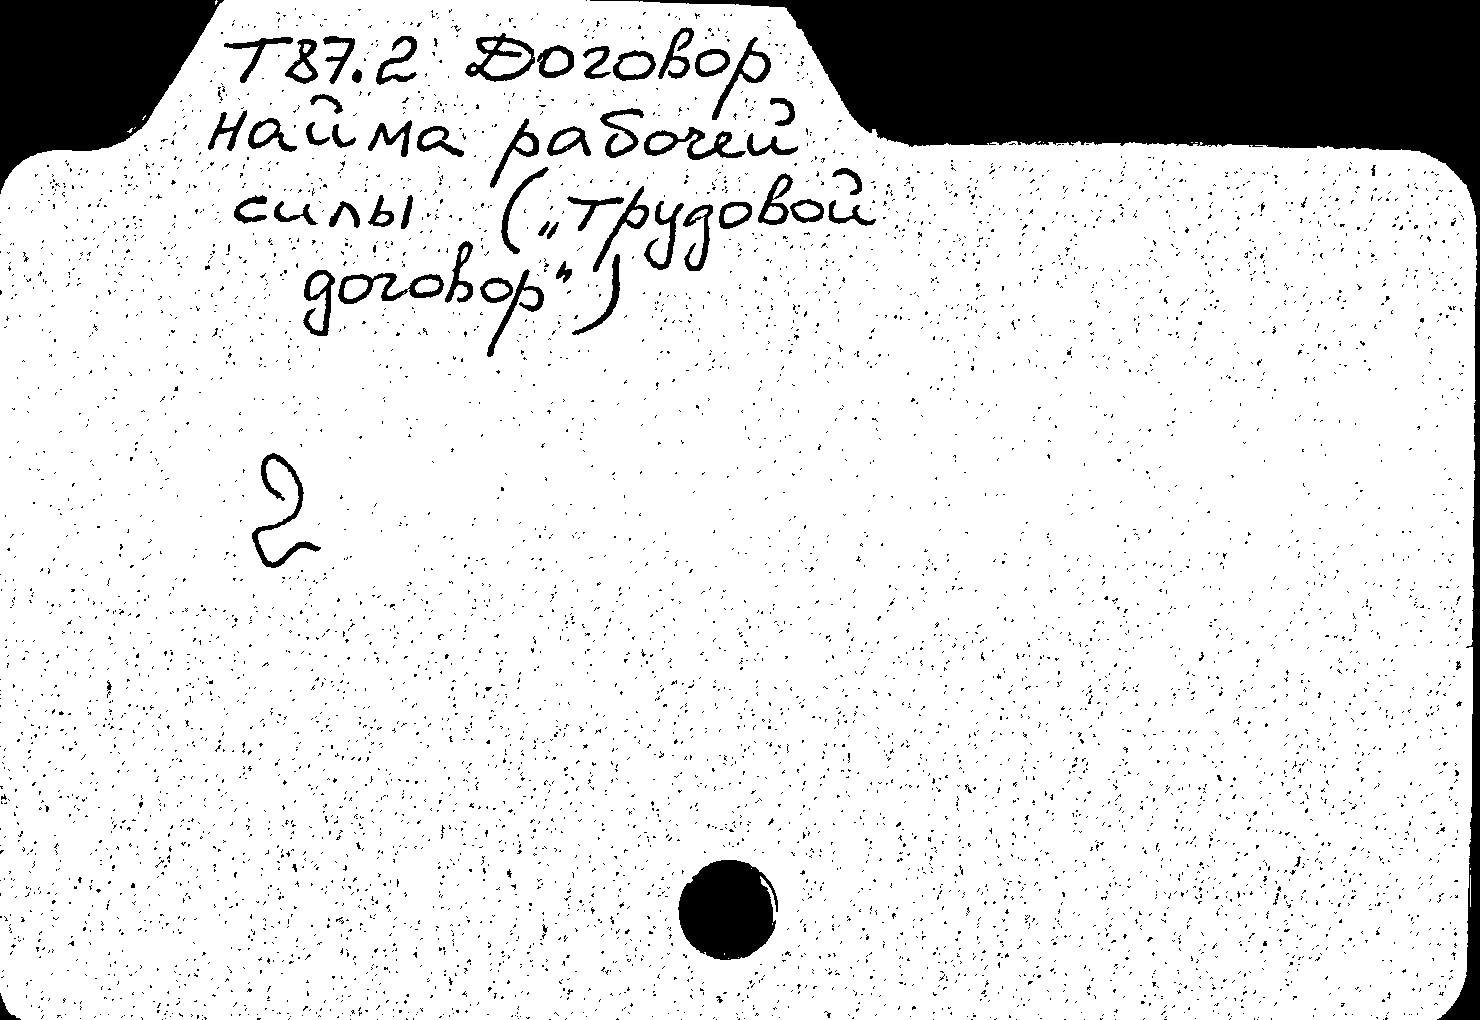 Т87.2 Договор
найма рабочей
силы („трудовой
договор")
2